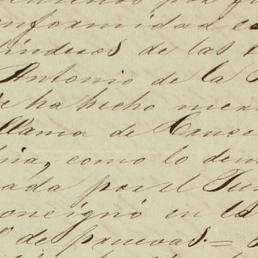 conformidad co
índices de las
Antonio de la
se ha hecho men
llama de Cance
nia, como lo dem
ada por el Tri
consignó en la
" de pruevas. =